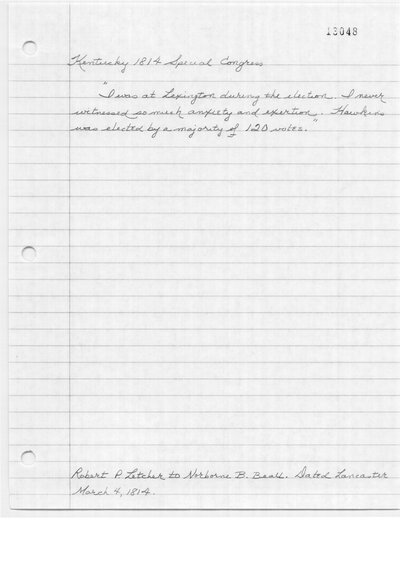 13048
Kentucky 1814 Special Congress
"I was at Lexington during the election. I never
witnessed so much anxiety and exertion. Hawkins
was elected by a majority of 120 votes."
Robert P Letcher to Norborne B. Beall. Dated Lancaster
March 4, 1814.